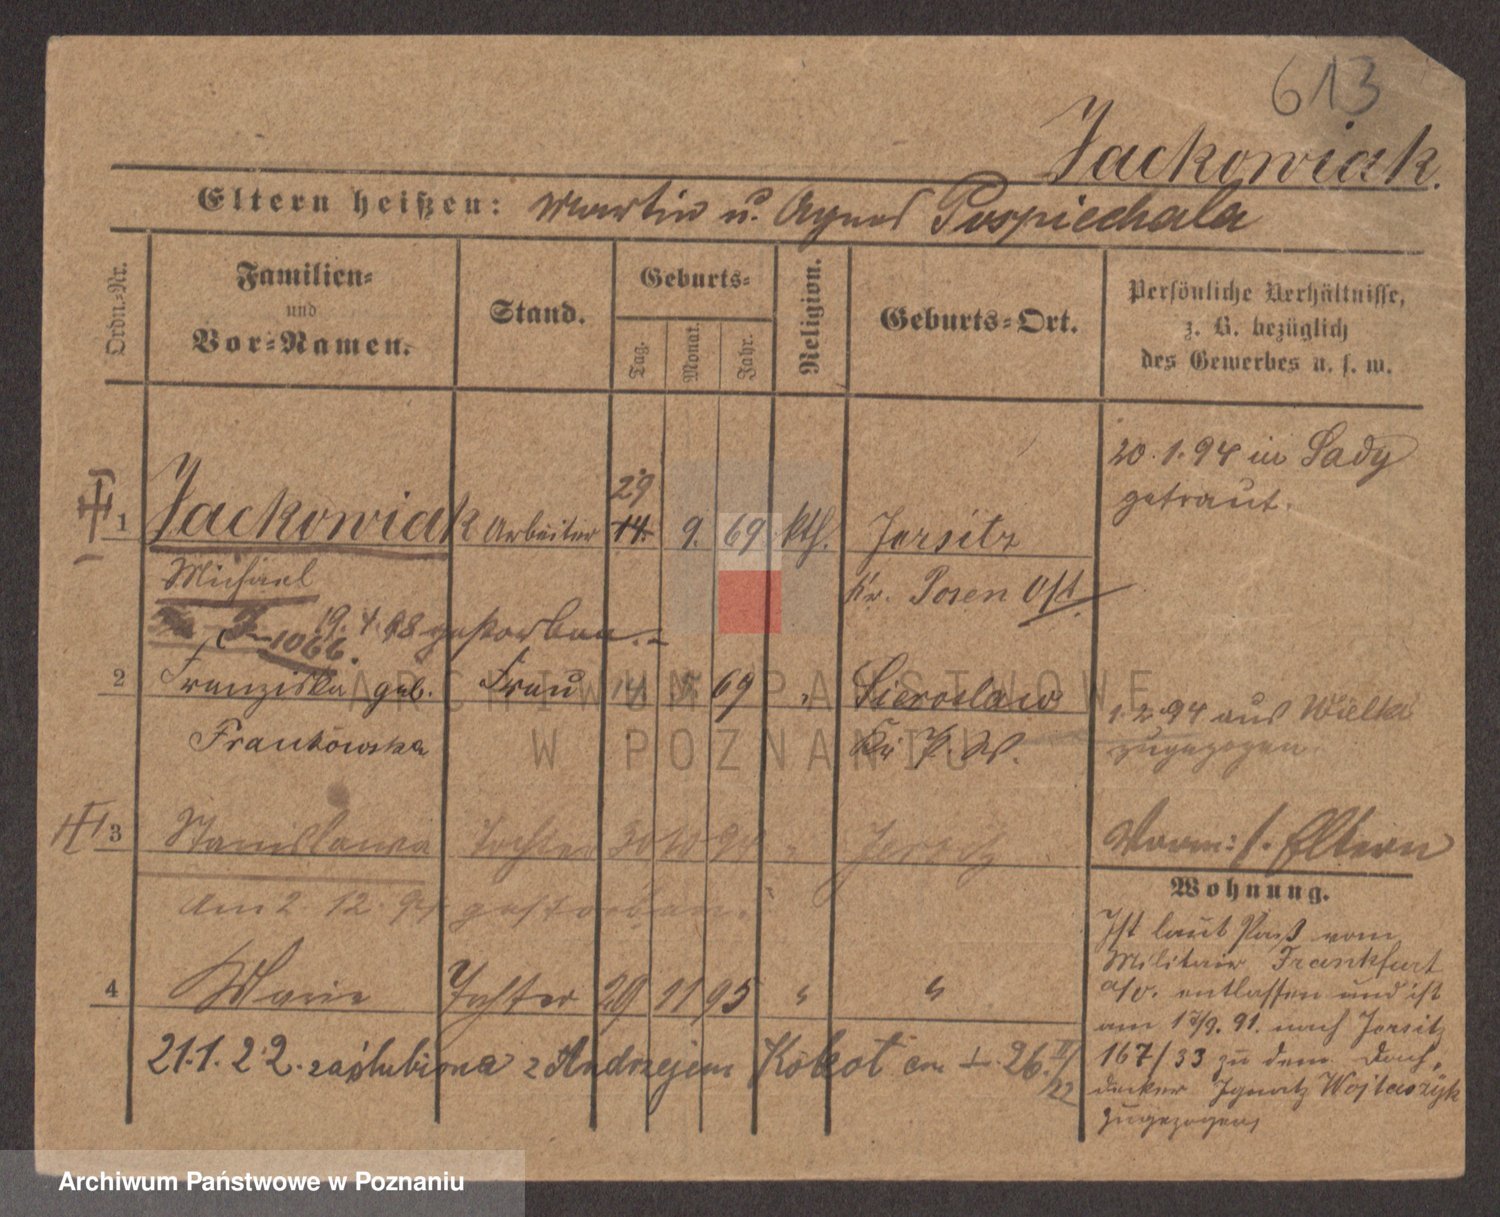 613
Jackowiak.
Eltern heißen: Martin u. Agnes Pospiechala
Ordn.-Nr.
Familien-
und
Vor-Namen.
Stand.
Geburts-
Tag.
Monat.
Jahr.
Religion.
Geburts-Ort.
Persönliche Verhältnisse,
z. B. bezüglich
des Gewerbes u. s. w.
20.1.94 in Sady
getraut.
29
1 Jackowiak Arbeiter 14. 9. 69 kth. Jersitz
Michael
Kr. Posen Ost
19.4.98 gestorben.
1066.
2 Franziska geb. Frau 14. 69 " Sieroslaw
Frankowska
Kr. P. W.
1.2.94 aus Wielka
zugezogen.
3 Stanislawa Tochter 30 10 94 " Jersitz
Am 2.12.94 gestorben.
Vorm: s. Eltern
Wohnung.
4 Marie Tochter 29 11 95 " "
21.1.22. zaślubiona z Andrzejem Kobot 26.II/22
Ist laut Paß vom
Militair Frankfurt
a/O. entlassen und ist
am 17/9. 91. nach Jersitz
167/33 zu dem Dach,
decker Ignatz Wojtaszyk
zugezogen
ARCHIWUM PAŃSTWOWE
W POZNANIU
Archiwum Państwowe w Poznaniu